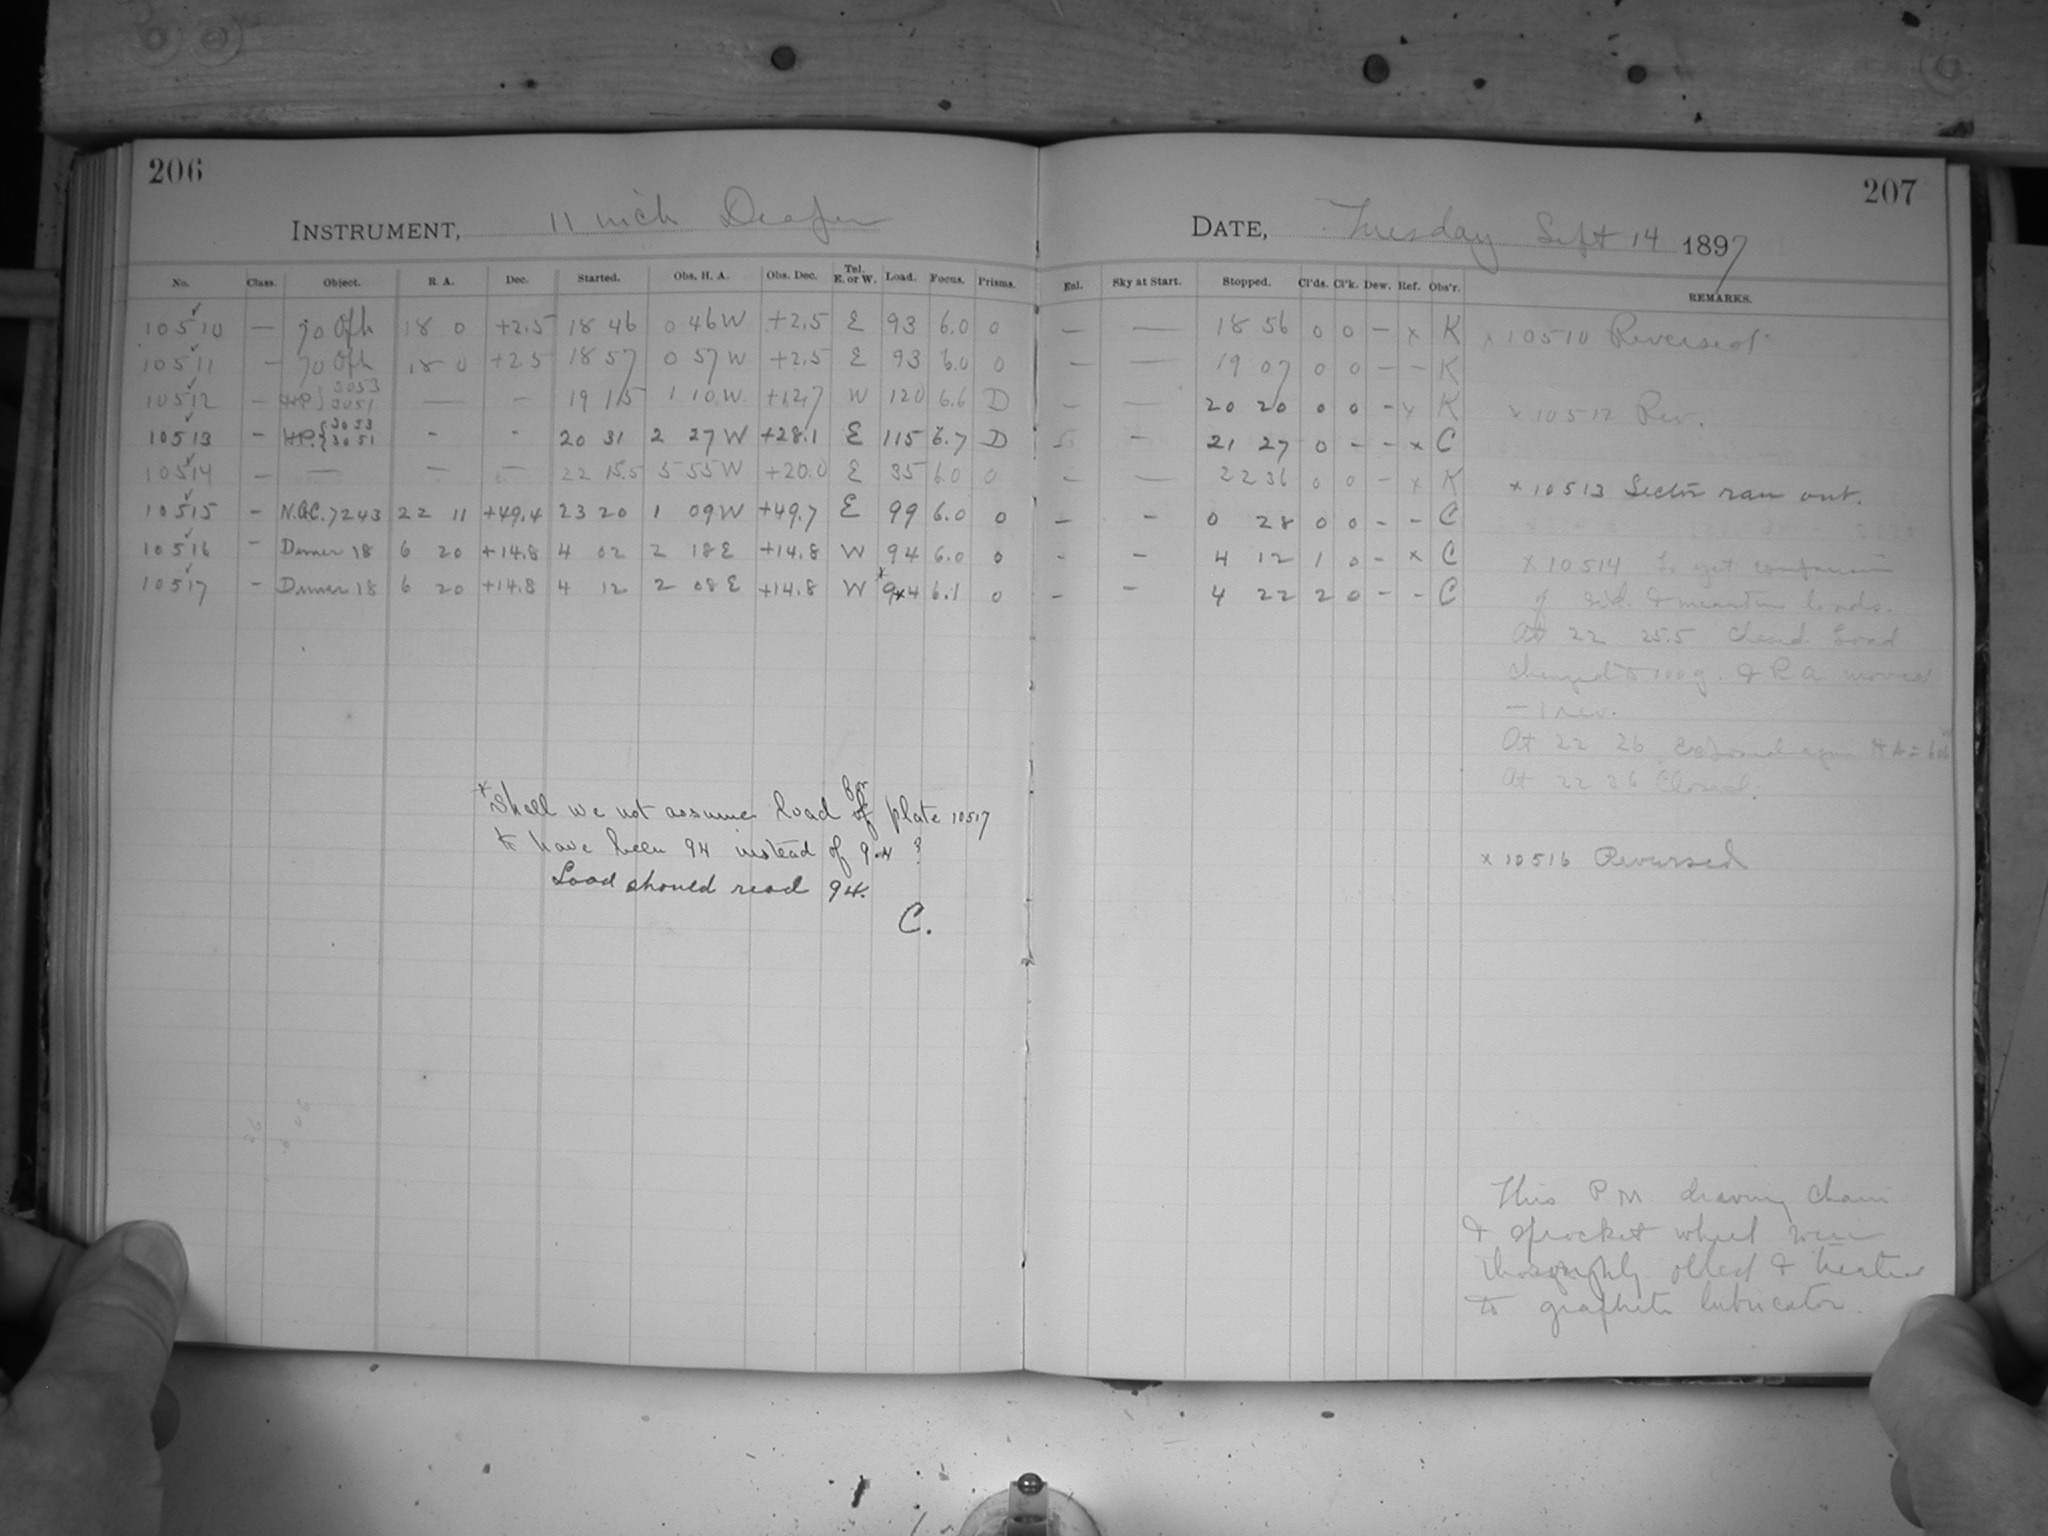 206
INSTRUMENT, 11 inch Draper
No. Class. Object. R. A. Dec. Started. Obs. H. A. Obs. Dec. Tel. E. or W. Load. Focus. Prisms.
10510 — 70 Oph 18 0 +2.5 18 46 0 46 W +2.5 E 93 6.0 0
10511 — 70 Oph 18 0 +2.5 18 57 0 57 W +2.5 E 93 6.0 0
10512 — H.P. } 3053 3051 — — 19 15 1 10 W +12.7 W 120 6.6 D
10513 — H.P. { 3053 3051 - - 20 31 2 27 W +28.1 E 115 6.7 D
10514 — — — — 22 15.5 5 55 W +20.0 E 85 6.0 0
10515 - N.G.C. 7243 22 11 +49.4 23 20 1 09 W +49.7 E 99 6.0 0
10516 - Dunér 18 6 20 +14.8 4 02 2 18 E +14.8 W 94 6.0 0
10517 - Duner 18 6 20 +14.8 4 12 2 08 E +14.8 W *9x4 6.1 0
*Shall we not assume load of for plate 10517
to have been 94 instead of 9x4 ?
Load should read 94.
C.
207
DATE, Tuesday Sept 14 1897
Enl. Sky at Start. Stopped. Cl'ds. Cl'k. Dew. Ref. Obs'r. REMARKS.
— — 18 56 0 0 — x K x 10510 Reversed
— — 19 07 0 0 — — K
— — 20 20 0 0 - x K x 10512 Rev.
- 21 27 0 - - x C
- — 22 36 0 0 - x K x 10513 Sector ran out.
- - 0 28 0 0 - - C
- - 4 12 1 0 - x C x 10514 To get comparison
- - 4 22 2 0 - - C of sid. & meantime loads.
At 22 25.5 Closed. Load
changed to 100g. & R A moved
— 1 rev.
At 22 26 Exposed again H A =
At 22 36 Closed.
x 10516 Reversed
This P M driving chain
& sprocket wheel were
thoroughly oiled & treated
to graphite lubricator.